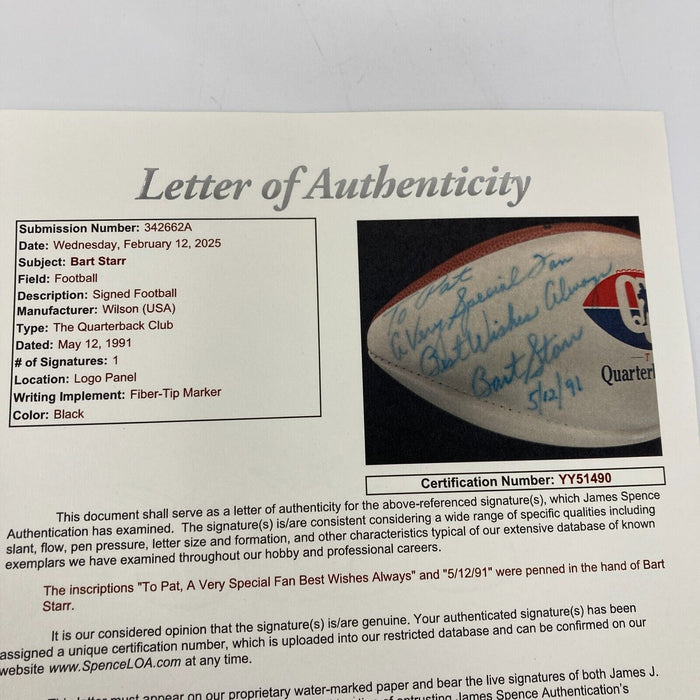 Letter of Authenticity
Submission Number: 342662A
Date: Wednesday, February 12, 2025
Subject: Bart Starr
Field: Football
Description: Signed Football
Manufacturer: Wilson (USA)
Type: The Quarterback Club
Dated: May 12, 1991
# of Signatures: 1
Location: Logo Panel
Writing Implement: Fiber-Tip Marker
Color: Black
To Pat
A Very Special Fan
Best Wishes Always
Bart Starr
5/12/91
Q
T
Quarter
Certification Number: YY51490
This document shall serve as a letter of authenticity for the above-referenced signature(s), which James Spence
Authentication has examined. The signature(s) is/are consistent considering a wide range of specific qualities including
slant, flow, pen pressure, letter size and formation, and other characteristics typical of our extensive database of known
exemplars we have examined throughout our hobby and professional careers.
The inscriptions "To Pat, A Very Special Fan Best Wishes Always" and "5/12/91" were penned in the hand of Bart
Starr.
It is our considered opinion that the signature(s) is/are genuine. Your authenticated signature(s) has been
assigned a unique certification number, which is uploaded into our restricted database and can be confirmed on our
website www.SpenceLOA.com at any time.
This letter must appear on our proprietary water-marked paper and bear the live signatures of both James J.
of entrusting James Spence Authentication's